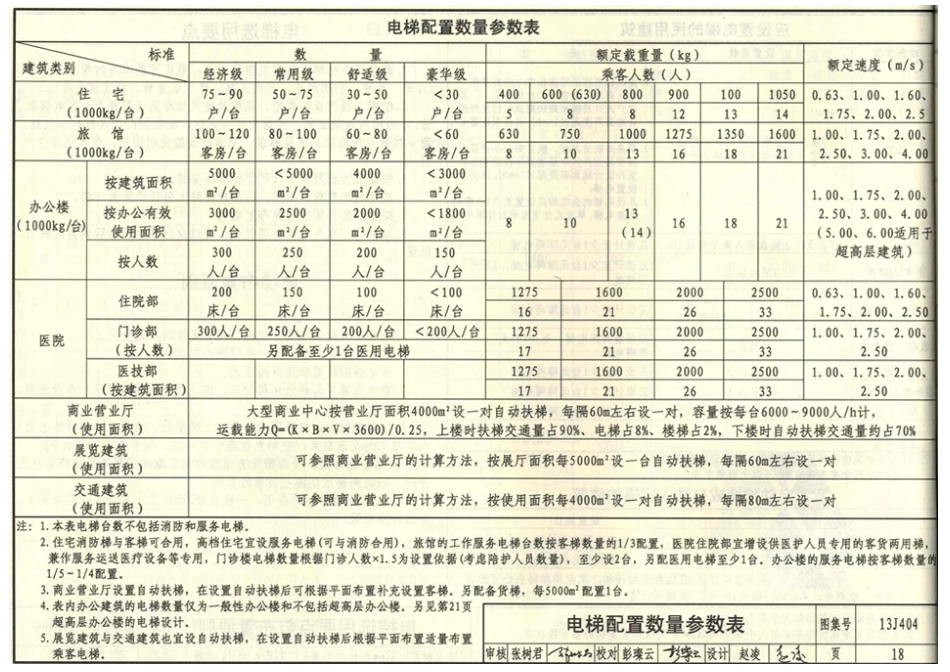 电梯配置数量参数表
标准 数 量 额定载重量（kg） 额定速度（m/s）
建筑类别 经济级 常用级 舒适级 豪华级 乘客人数（人）
住 宅 75~90 50~75 30~50 <30 400 600 (630) 800 900 100 1050 0.63、1.00、1.60、
(1000kg/台) 户/台 户/台 户/台 户/台 5 8 8 12 13 14 1.75、2.00、2.5
旅 馆 100~120 80~100 60~80 <60 630 750 1000 1275 1350 1600 1.00、1.75、2.00、
(1000kg/台) 客房/台 客房/台 客房/台 客房/台 8 10 13 16 18 21 2.50、3.00、4.00
办公楼
(1000kg/台)
按建筑面积 5000 <5000 4000 <3000
m²/台 m²/台 m²/台 m²/台
按办公有效 3000 2500 2000 <1800
使用面积 m²/台 m²/台 m²/台 m²/台
按人数 300 250 200 150
人/台 人/台 人/台 人/台
8 10 13 16 18 21
(14)
1.00、1.75、2.00、
2.50、3.00、4.00
(5.00、6.00适用于
超高层建筑)
医院
住院部 200 150 100 <100 1275 1600 2000 2500 0.63、1.00、1.60、
床/台 床/台 床/台 床/台 16 21 26 33 1.75、2.00、2.50
门诊部 300人/台 250人/台 200人/台 <200人/台 1275 1600 2000 2500 1.00、1.75、2.00、
(按人数) 另配备至少1台医用电梯 17 21 26 33 2.50
医技部 1275 1600 2000 2500 1.00、1.75、2.00、
(按建筑面积) 17 21 26 33 2.50
商业营业厅 大型商业中心按营业厅面积4000m²设一对自动扶梯，每隔60m左右设一对，容量按每台6000~9000人/h计，
(使用面积) 运载能力Q=(K×B×V×3600)/0.25，上楼时扶梯交通量占90%、电梯占8%、楼梯占2%，下楼时自动扶梯交通量约占70%
展览建筑
(使用面积) 可参照商业营业厅的计算方法，按展厅面积每5000m²设一台自动扶梯，每隔60m左右设一对
交通建筑
(使用面积) 可参照商业营业厅的计算方法，按使用面积每4000m²设一对自动扶梯，每隔80m左右设一对
注：1.本表电梯台数不包括消防和服务电梯。
2.住宅消防梯与客梯可合用，高档住宅宜设服务电梯(可与消防合用)，旅馆的工作服务电梯台数按客梯数量的1/3配置，医院住院部宜增设供医护人员专用的客货两用梯，
兼作服务运送医疗设备等专用，门诊楼电梯数量根据门诊人数×1.5为设置依据(考虑陪护人员数量)，至少设2台，另配医用电梯至少1台。办公楼的服务电梯按客梯数量的
1/5~1/4配置。
3.商业营业厅设置自动扶梯，在设置自动扶梯后可根据平面布置补充设置客梯。另配备货梯，每5000m²配置1台。
4.表内办公建筑的电梯数量仅为一般性办公楼和不包括超高层办公楼。另见第21页
超高层办公楼的电梯设计。
5.展览建筑与交通建筑也宜设自动扶梯，在设置自动扶梯后根据平面布置适量布置
乘客电梯。
电梯配置数量参数表 图集号 13J404
审核 张树君 校对 彭璨云 设计 赵凌 页 18